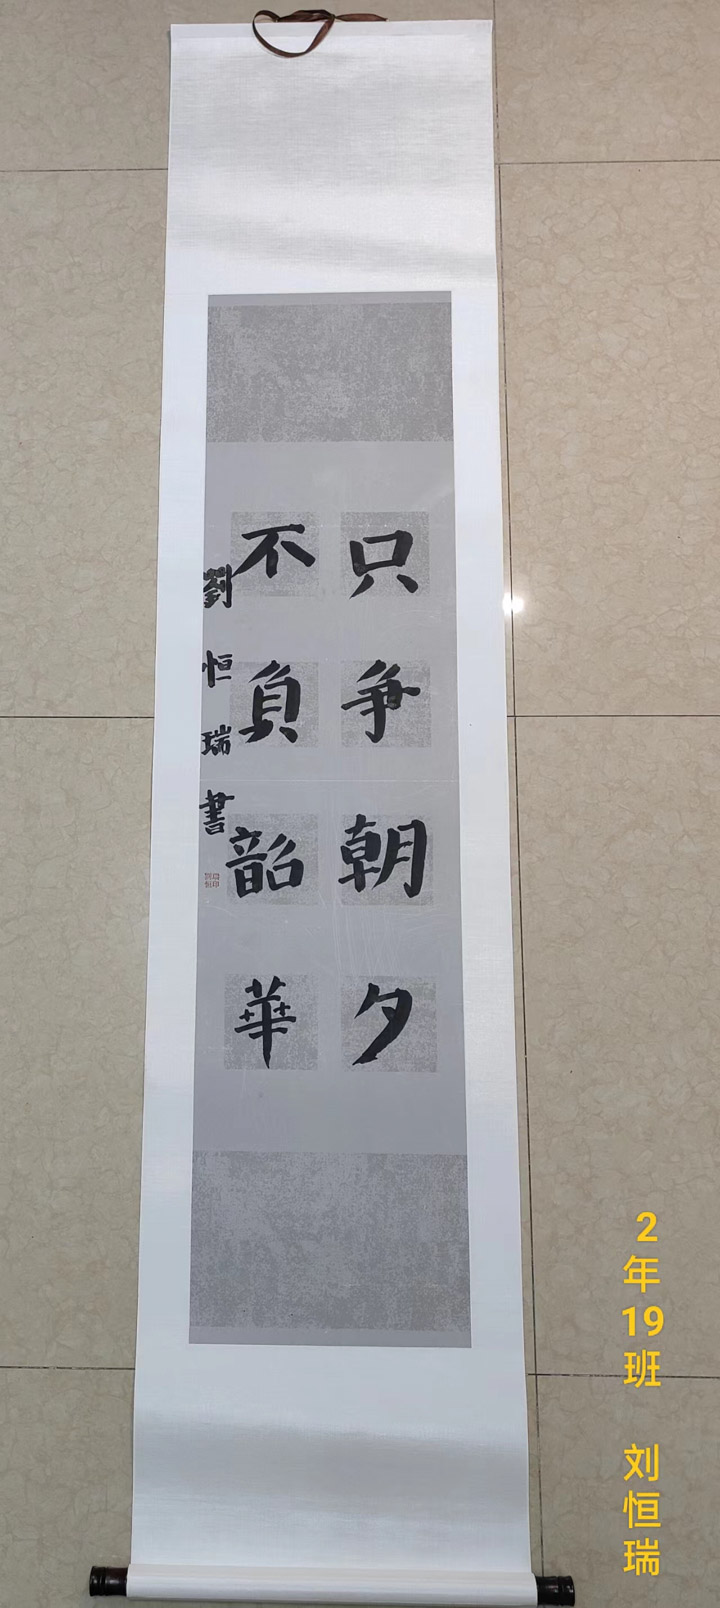 只争朝夕
不負韶華
劉恒瑞書
劉恒瑞印
2年19班 刘恒瑞